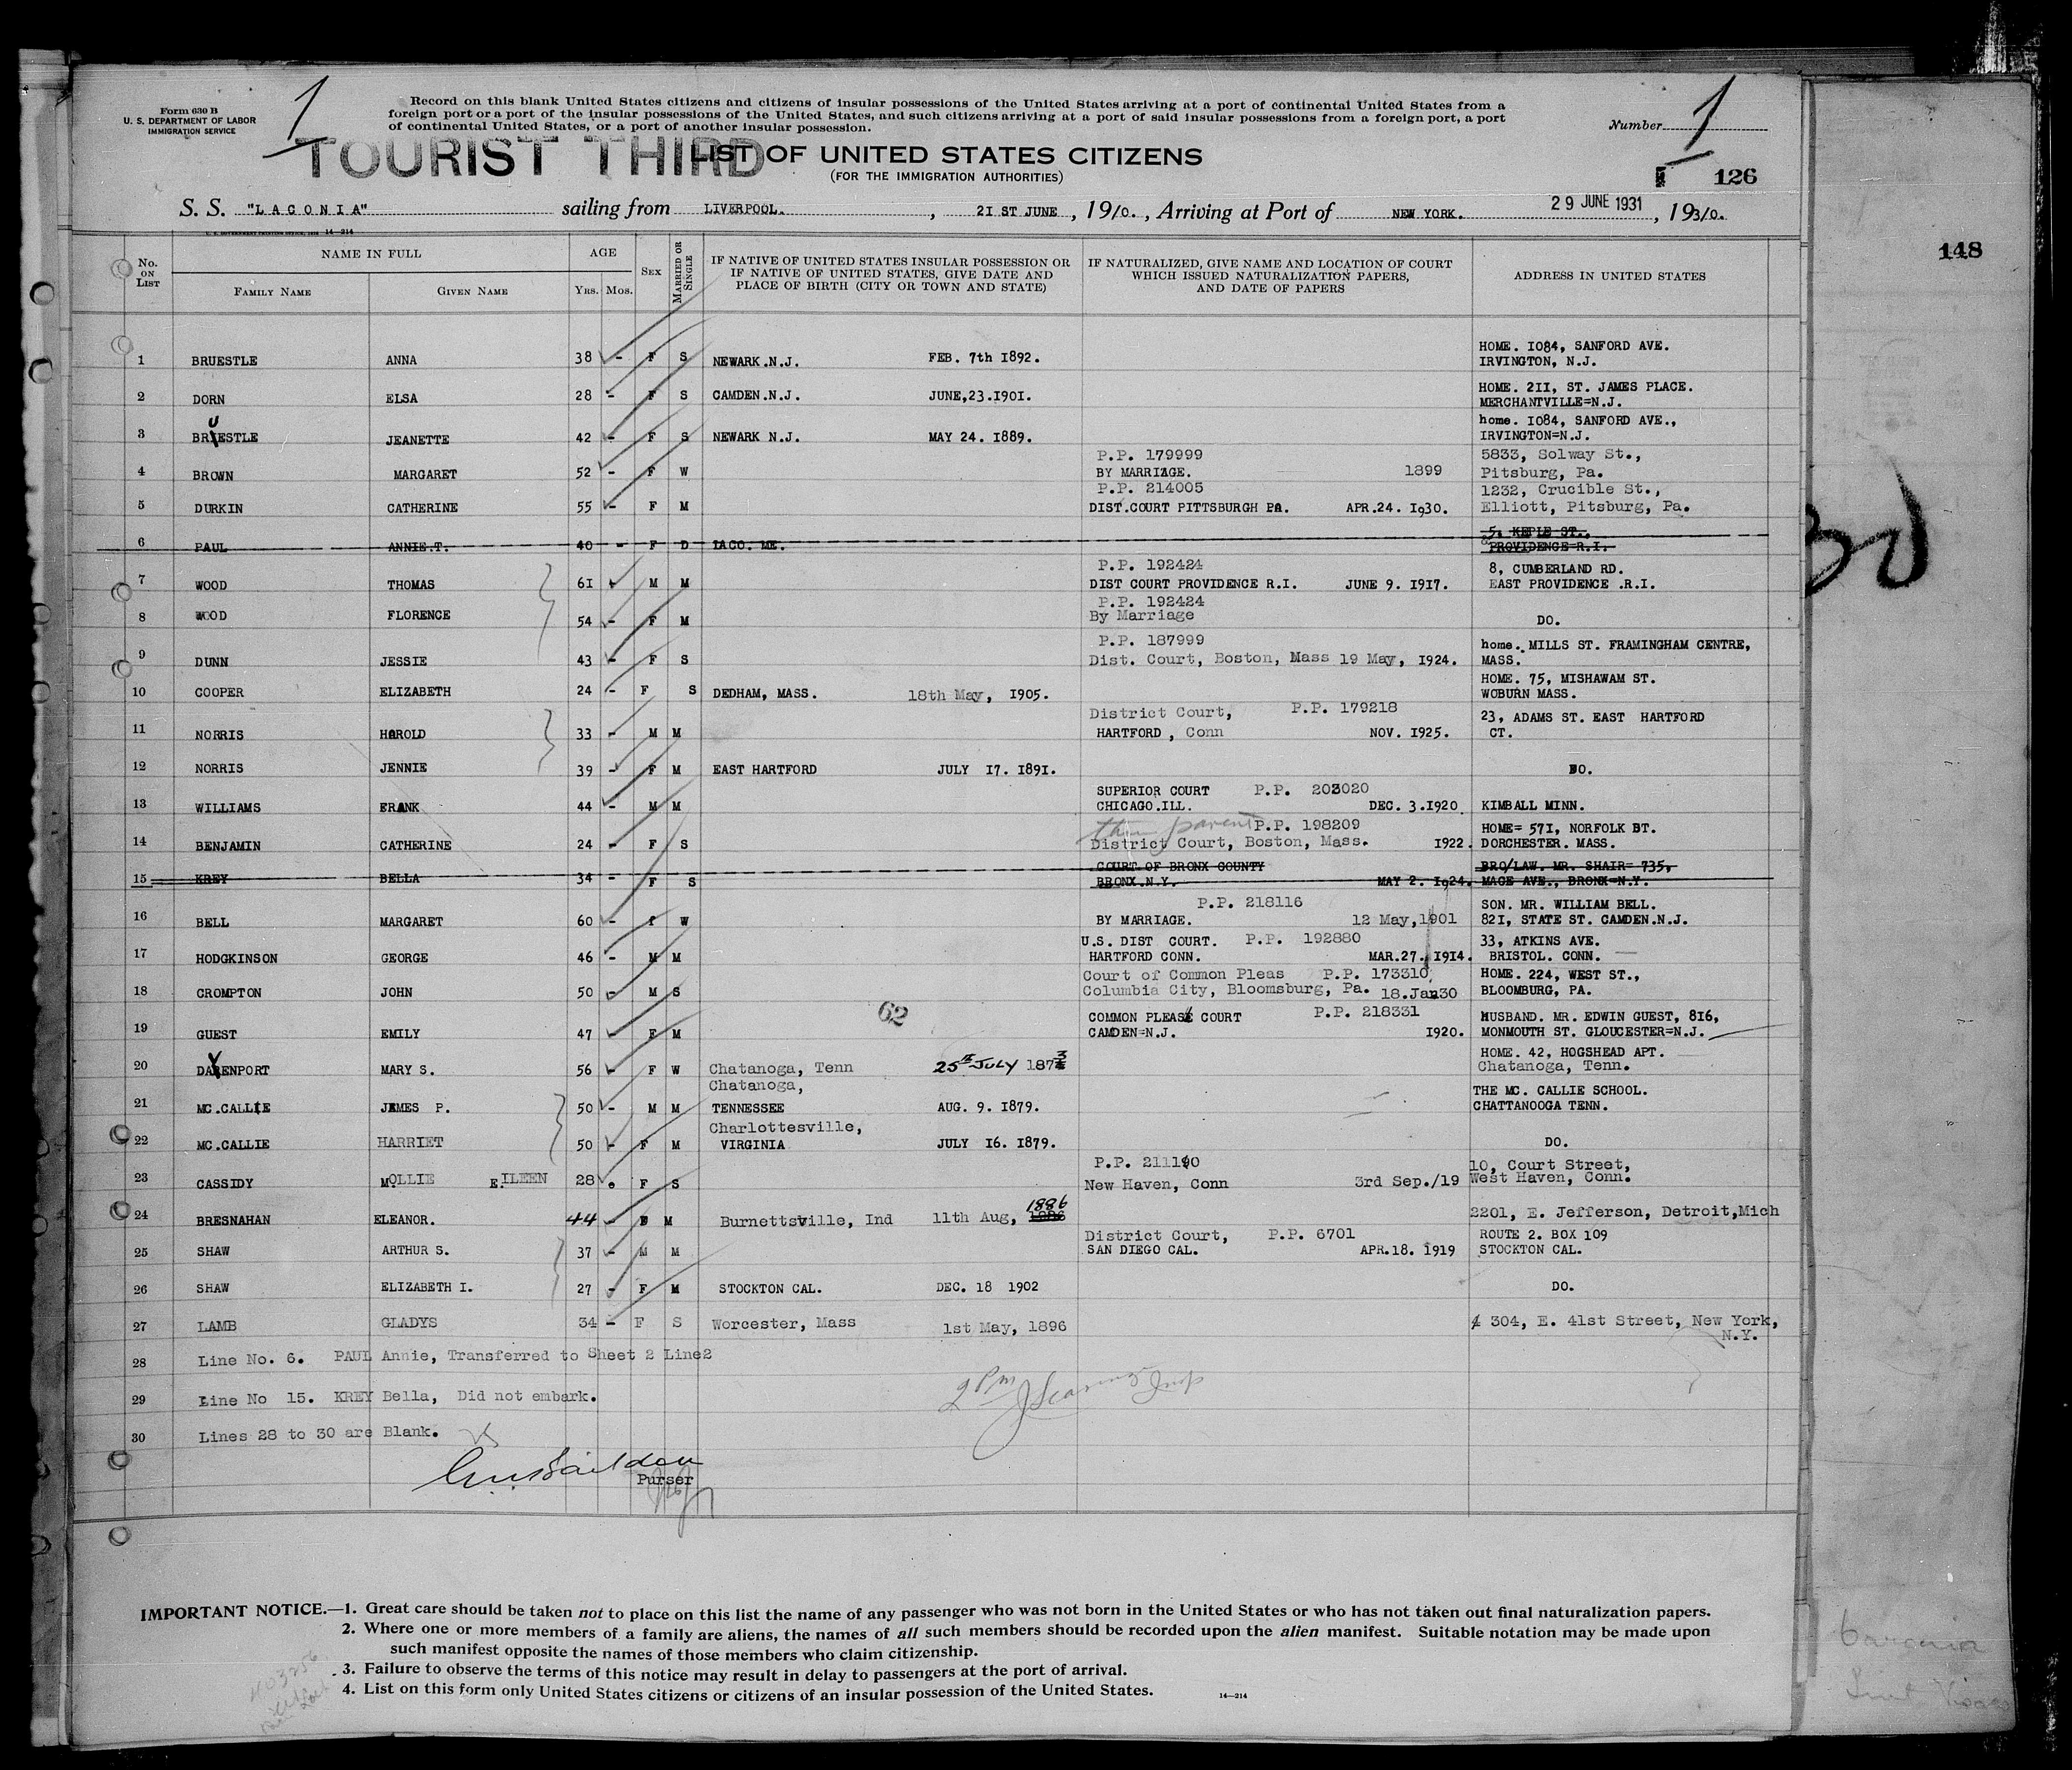 1
1
Form 630 B
U. S. DEPARTMENT OF LABOR
IMMIGRATION SERVICE
Record on this blank United States citizens and citizens of insular possessions of the United States arriving at a port of continental United States from a
foreign port or a port of the insular possessions of the United States, and such citizens arriving at a port of said insular possessions from a foreign port, a port
of continental United States, or a port of another insular possession.
Number
TOURIST THIRD
LIST OF UNITED STATES CITIZENS
(FOR THE IMMIGRATION AUTHORITIES)
126
S. S. "LACONIA" sailing from LIVERPOOL. , 21 ST JUNE , 19/0. , Arriving at Port of NEW YORK. 29 JUNE 1931 , 193/0.
14—214
148
No. ON LIST
NAME IN FULL
FAMILY NAME GIVEN NAME
AGE
YRS. MOS.
SEX
MARRIED OR SINGLE
IF NATIVE OF UNITED STATES INSULAR POSSESSION OR
IF NATIVE OF UNITED STATES, GIVE DATE AND
PLACE OF BIRTH (CITY OR TOWN AND STATE)
IF NATURALIZED, GIVE NAME AND LOCATION OF COURT
WHICH ISSUED NATURALIZATION PAPERS,
AND DATE OF PAPERS
ADDRESS IN UNITED STATES
HOME. 1084, SANFORD AVE.
1 BRUESTLE ANNA 38 - F S NEWARK.N.J. FEB. 7th 1892. IRVINGTON, N.J.
HOME. 211, ST. JAMES PLACE.
2 DORN ELSA 28 - F S CAMDEN.N.J. JUNE,23.1901. MERCHANTVILLE=N.J.
home. 1084, SANFORD AVE.,
3 BRUESTLE JEANETTE 42 - F S NEWARK N.J. MAY 24. 1889. IRVINGTON=N.J.
P.P. 179999 5833, Solway St.,
4 BROWN MARGARET 52 - F W BY MARRIAGE. 1899 Pitsburg, Pa.
P.P. 214005 1232, Crucible St.,
5 DURKIN CATHERINE 55 - F M DIST.COURT PITTSBURGH PA. APR.24. 1930. Elliott, Pitsburg, Pa.
5, KEPLE ST.,
6 PAUL ANNIE.T. 40 - F D IACO. ME. PROVIDENCE=R.I.
P.P. 192424 8, CUMBERLAND RD.
7 WOOD THOMAS 61 - M M DIST COURT PROVIDENCE R.I. JUNE 9. 1917. EAST PROVIDENCE .R.I.
P.P. 192424
8 WOOD FLORENCE 54 - F M By Marriage DO.
P.P. 187999 home. MILLS ST. FRAMINGHAM CENTRE,
9 DUNN JESSIE 43 - F S Dist. Court, Boston, Mass 19 May, 1924. MASS.
HOME. 75, MISHAWAM ST.
10 COOPER ELIZABETH 24 - F S DEDHAM, MASS. 18th May, 1905. WOBURN MASS.
District Court, P.P. 179218 23, ADAMS ST. EAST HARTFORD
11 NORRIS HAROLD 33 - M M HARTFORD , Conn NOV. 1925. CT.
12 NORRIS JENNIE 39 - F M EAST HARTFORD JULY 17. 1891. DO.
SUPERIOR COURT P.P. 203020
13 WILLIAMS FRANK 44 - M M CHICAGO.ILL. DEC. 3.1920 KIMBALL MINN.
parent P.P. 198209 HOME= 571, NORFOLK BT.
14 BENJAMIN CATHERINE 24 - F S District Court, Boston, Mass. 1922. DORCHESTER. MASS.
COURT OF BRONX COUNTY BRO/LAW. MR. SHAIR= 735,
15 KREY BELLA 34 - F S BRONX.N.Y. MAY 2. 1924. MACE AVE., BRONX=N.Y.
P.P. 218116 SON. MR. WILLIAM BELL.
16 BELL MARGARET 60 - f W BY MARRIAGE. 12 May,1901 821, STATE ST. CAMDEN.N.J.
U.S. DIST COURT. P.P. 192880 33, ATKINS AVE.
17 HODGKINSON GEORGE 46 - M M HARTFORD CONN. MAR.27. 1914. BRISTOL. CONN.
Court of Common Pleas P.P. 173310 HOME. 224, WEST ST.,
18 CROMPTON JOHN 50 - M S Columbia City, Bloomsburg, Pa. 18.Jan30 BLOOMBURG, PA.
62
COMMON PLEAS COURT P.P. 218331 HUSBAND. MR. EDWIN GUEST, 816,
19 GUEST EMILY 47 - F M CAMDEN=N.J. 1920. MONMOUTH ST. GLOUCESTER=N.J.
HOME. 42, HOGSHEAD APT.
20 DAVENPORT MARY S. 56 - F W Chatanoga, Tenn 25th JULY 1873 Chatanoga, Tenn.
Chatanoga, THE MC. CALLIE SCHOOL.
21 MC.CALLIE JAMES P. 50 - M M TENNESSEE AUG. 9. 1879. CHATTANOOGA TENN.
Charlottesville,
22 MC.CALLIE HARRIET 50 - F M VIRGINIA JULY 16. 1879. DO.
P.P. 211190 10, Court Street,
23 CASSIDY MOLLIE EILEEN 28 F S New Haven, Conn 3rd Sep./19 West Haven, Conn.
1886
24 BRESNAHAN ELEANOR. 44 - F M Burnettsville, Ind 11th Aug, 2201, E. Jefferson, Detroit,Mich
District Court, P.P. 6701 ROUTE 2. BOX 109
25 SHAW ARTHUR S. 37 - M M SAN DIEGO CAL. APR.18. 1919 STOCKTON CAL.
26 SHAW ELIZABETH I. 27 - F M STOCKTON CAL. DEC. 18 1902 DO.
27 LAMB GLADYS 34 - F S Worcester, Mass 1st May, 1896 304, E. 41st Street, New York,
N.Y.
28 Line No. 6. PAUL Annie, Transferred to Sheet 2 Line2
29 Line No 15. KREY Bella, Did not embark.
2 Pm
30 Lines 28 to 30 are Blank.
Purser
IMPORTANT NOTICE.—1. Great care should be taken not to place on this list the name of any passenger who was not born in the United States or who has not taken out final naturalization papers.
2. Where one or more members of a family are aliens, the names of all such members should be recorded upon the alien manifest. Suitable notation may be made upon
such manifest opposite the names of those members who claim citizenship.
3. Failure to observe the terms of this notice may result in delay to passengers at the port of arrival.
4. List on this form only United States citizens or citizens of an insular possession of the United States.
14—214